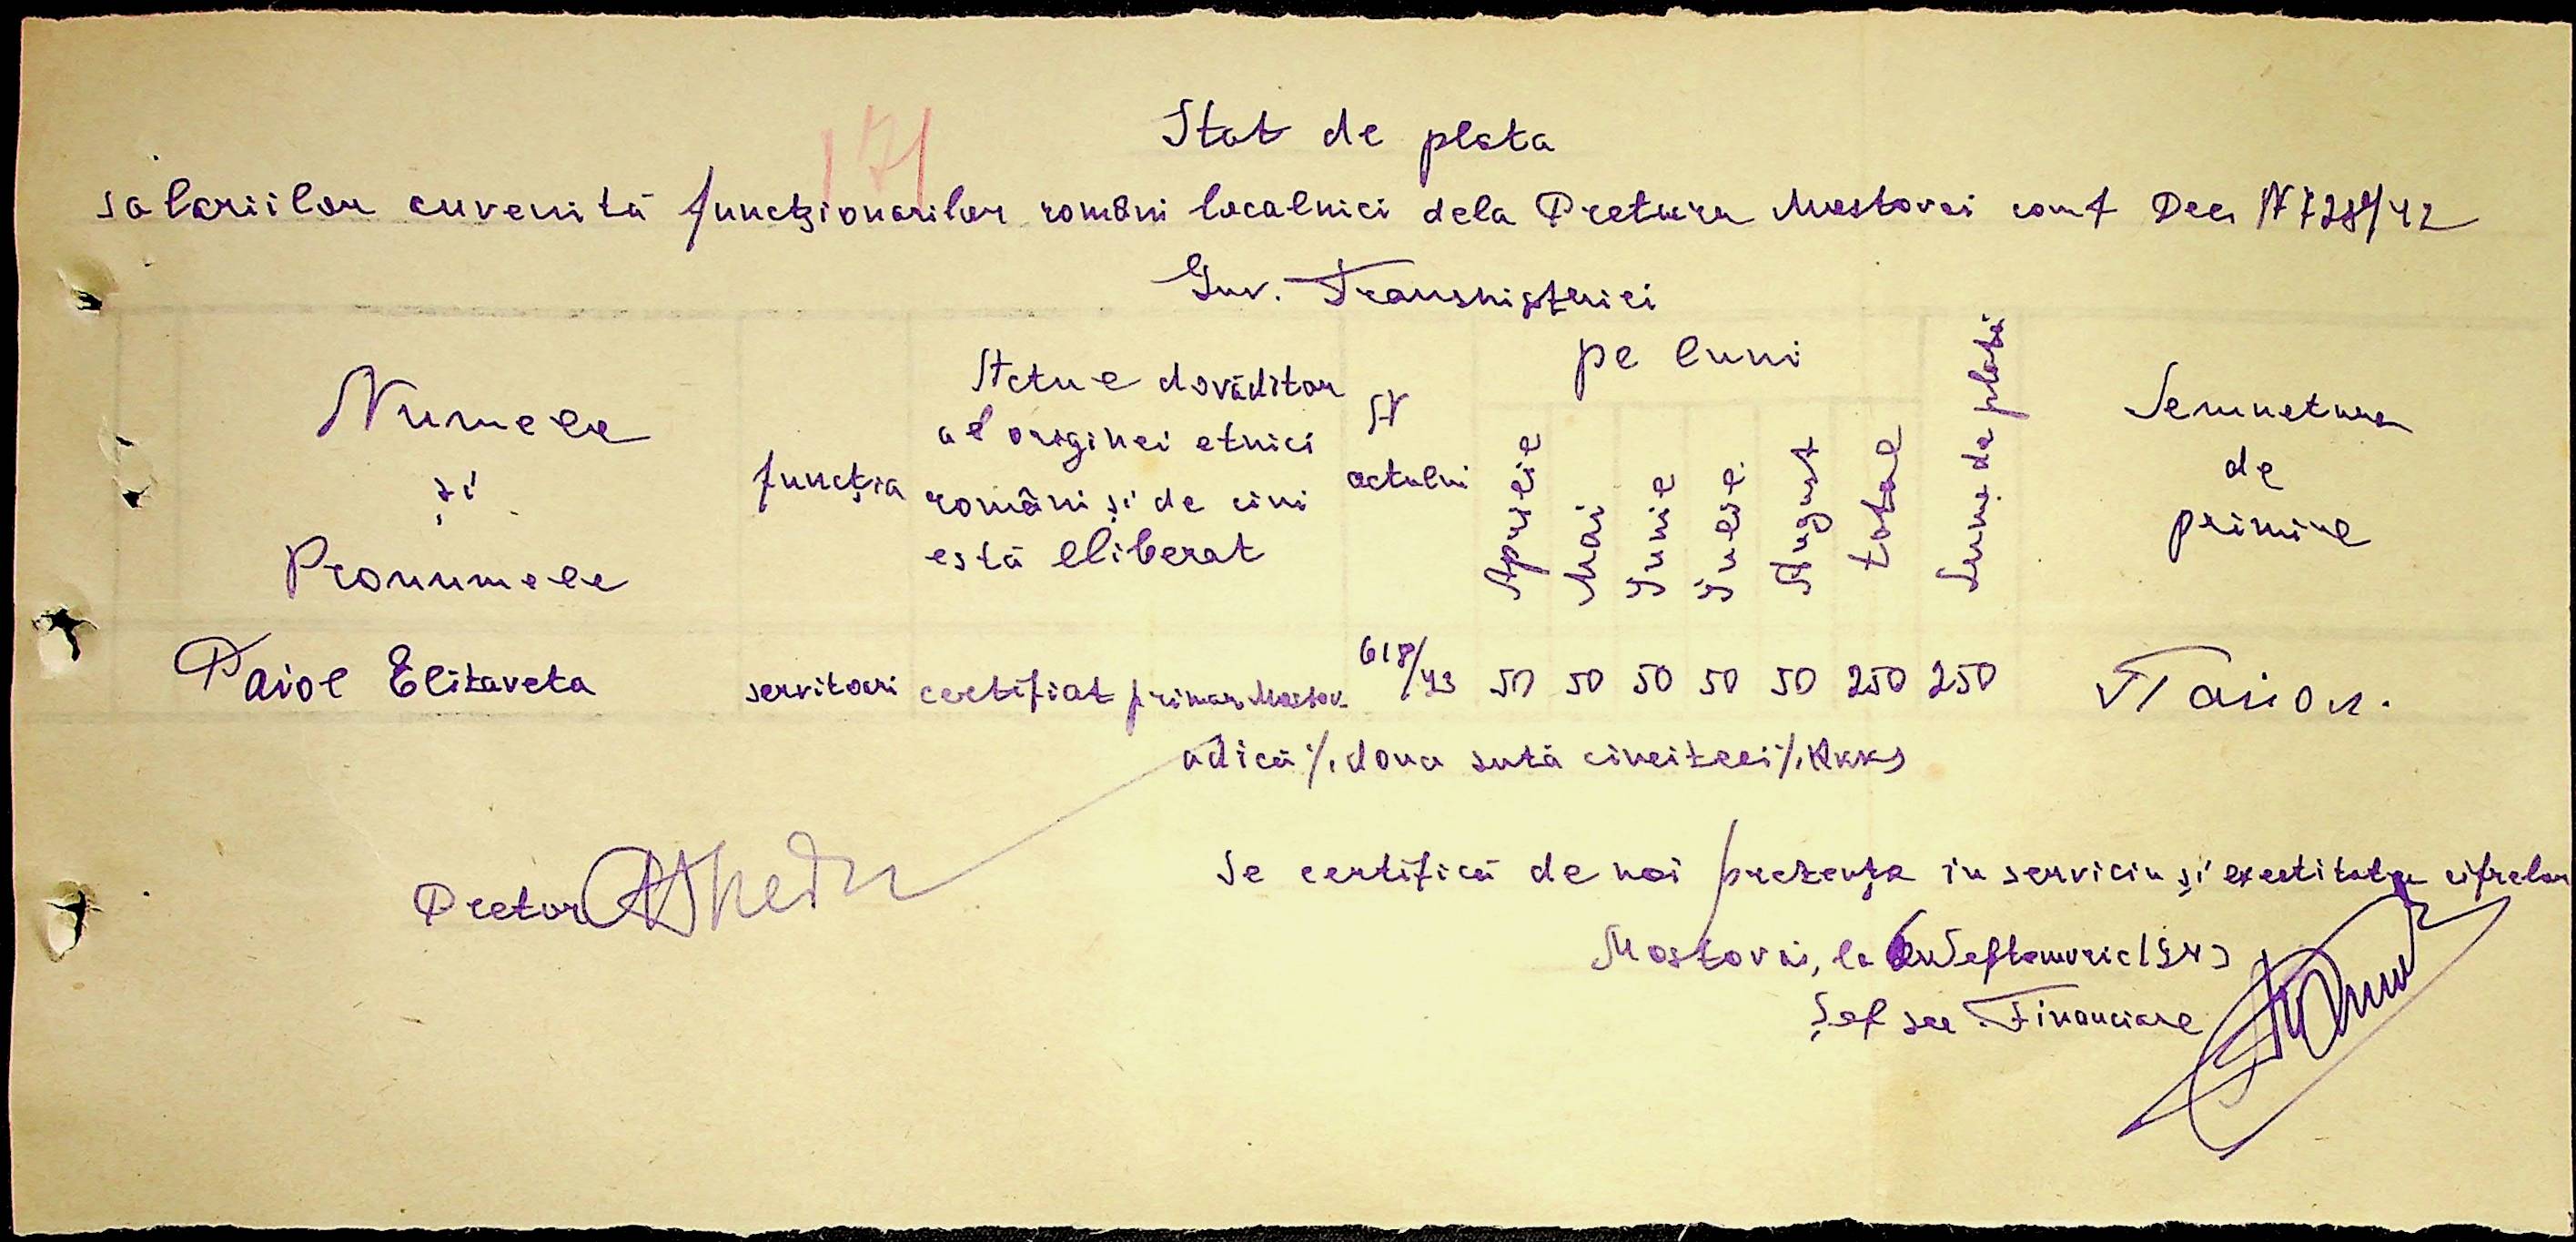 171
Stat de plata
salariilor cuvenită funcționarilor români locálnici dela Pretura Mostovoi conf Dec N 728/42
Guv. Transnistriei
Numele
și
Pronumele
funcția
Actul dovăditor
al originei etnici
români și de cini
está eliberat
N
actului
pe luni
Aprilie
Mai
Iunie
Iulie
August
total
Suma de plată
Semnetura
de
primire
Paiol Elizaveta servitoari certifiat primar Mostov. 618/43 50 50 50 50 50 250 250 Паиол.
adică %, doua sută cincizeci %, RKKS
Se certifică de noi prezența in serviciu și exactitatea cifrelor
Pretor
Mostovoi, la Septemvrie 1943
Șef sec Financiare